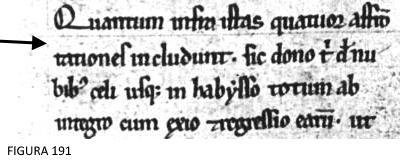 Quantum infra istas quatuor affrō
tationes includunt. sic dono
celi usq; in habysso totum ab
integro cum exio regressio ut
FIGURA 191